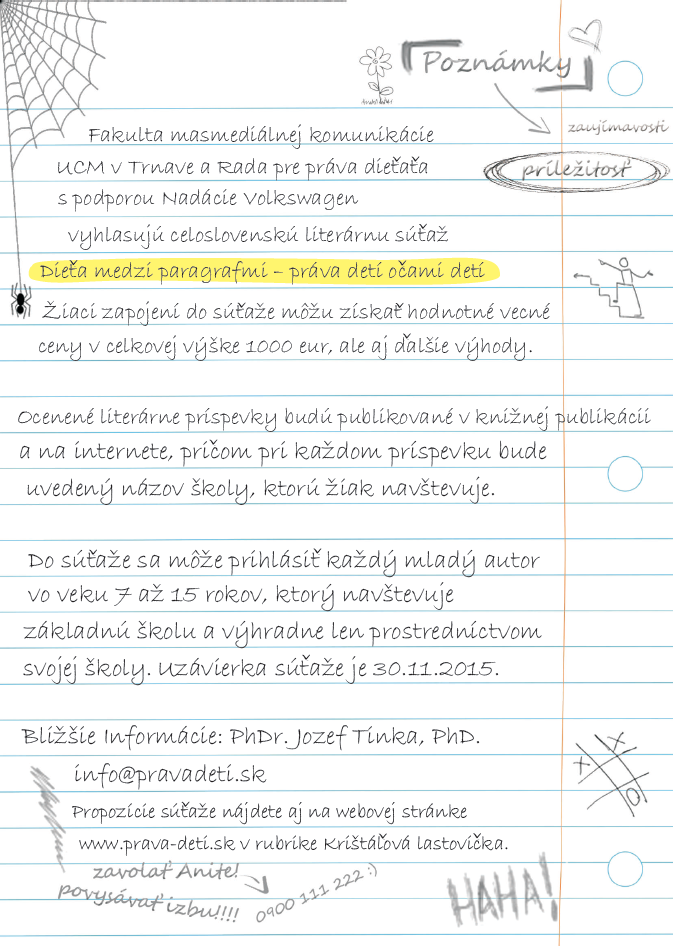 Poznámky
zaujímavosti
príležitosť
Fakulta masmediálnej komunikácie
UCM v Trnave a Rada pre práva dieťaťa
s podporou Nadácie Volkswagen
vyhlasujú celoslovenskú literárnu súťaž
Dieťa medzi paragrafmi – práva detí očami detí
Žiaci zapojení do súťaže môžu získať hodnotné vecné
ceny v celkovej výške 1000 eur, ale aj ďalšie výhody.
Ocenené literárne príspevky budú publikované v knižnej publikácii
a na internete, pričom pri každom príspevku bude
uvedený názov školy, ktorú žiak navštevuje.
Do súťaže sa môže prihlásiť každý mladý autor
vo veku 7 až 15 rokov, ktorý navštevuje
základnú školu a výhradne len prostredníctvom
svojej školy. Uzávierka súťaže je 30.11.2015.
Bližšie Informácie: PhDr. Jozef Tinka, PhD.
info@pravadeti.sk
Propozície súťaže nájdete aj na webovej stránke
www.prava-deti.sk v rubrike Krištáľová lastovička.
zavolať Anite!
povysávať izbu!!!!
0900 111 222 :)
HAHA!